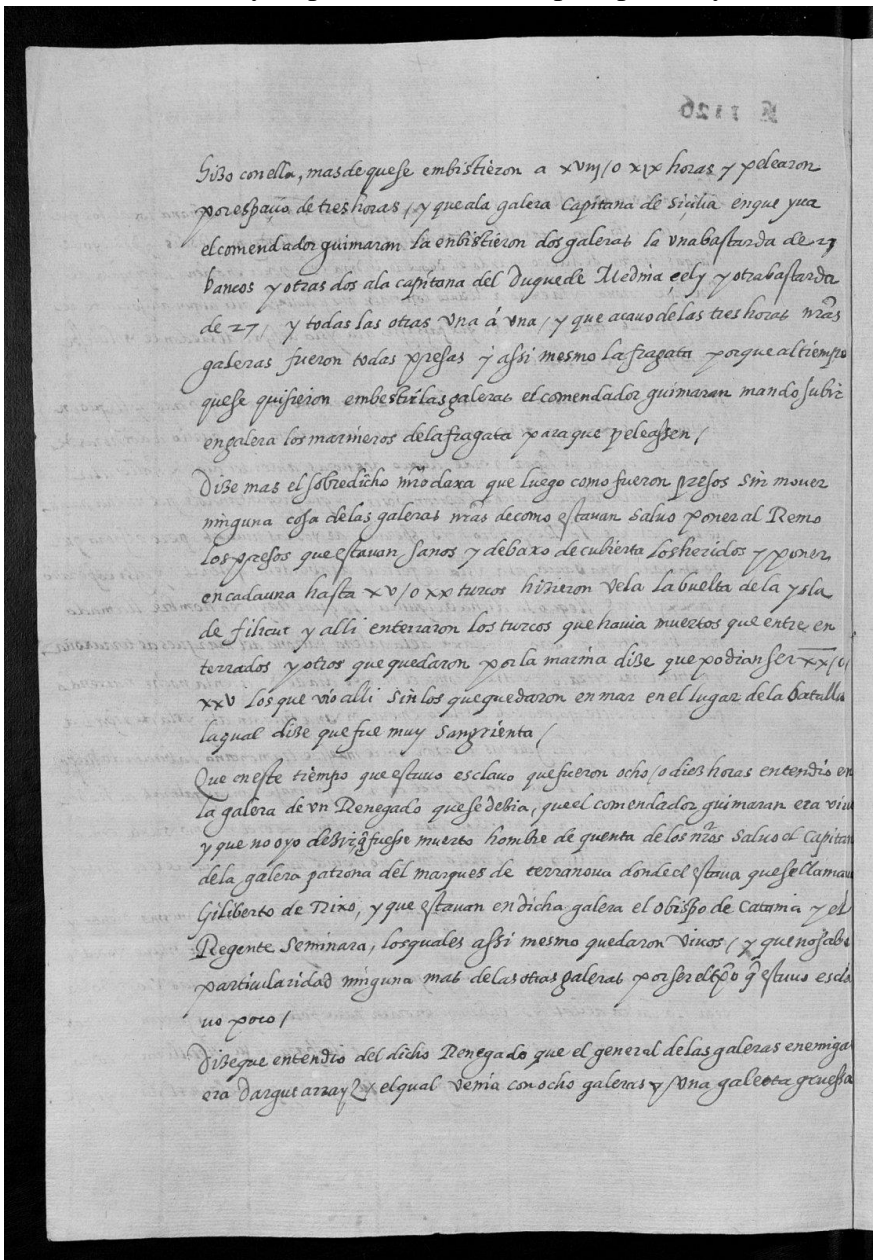 hizo con ella, mas de que se embistieron a xviij / o xix horas y pelearon
por espacio de tres horas / y que a la galera Capitana de Sicilia en que yua
el comendador guimaran la enbistieron dos galeras la vna bastarda de 27
bancos y otras dos a la capitana del Duque de Medina celj y otra bastarda
de 27 / y todas las otras vna á vna / y que acauo de las tres horas nrãs
galeras fueron todas presas y assi mesmo la fragata porque al tiempo
que se quisieron embestir las galeras el comendador guimaran mando subir
en galera los marineros de la fragata para que peleassen /
Dize mas el sobredicho daxa que luego como fueron presos sin mouer
ninguna cosa de las galeras nrãs de como estauan saluo poner al Remo
los presos que estauan sanos y debaxo de cubierta los heridos y poner
en cada una hasta xv / o xx turcos hizieron vela la buelta de la ysla
de filicut y alli enterraron los turcos que hauia muertos que entre en
terrados y otros que quedaron por la marina dize que podian ser xx / o /
xxv los que vio alli sin los que quedaron en mar en el lugar de la batalla
la qual dize que fue muy sangrienta /
Que en este tiempo que estuuo esclauo que fueron ocho / o diez horas entendio en
la galera de vn Renegado que se dezia, que el comendador guimaran era viuo
y que no oyo dezir q̃ fuesse muerto hombre de quenta de los nrõs saluo el Capitan
de la galera patrona del marques de terranoua donde el estaua que se llamaua
Giliberto de Rixo, y que estauan en dicha galera el obispo de Catania y el
Regente Seminara, los quales assi mesmo quedaron viuos / y que no sabe
particularidad ninguna mas de las otras galeras por ser el tp̃o q̃ estuuo escla
uo poco /
Dize que entendio del dicho Renegado que el general de las galeras enemigas
era dargut arrayz el qual venia con ocho galeras y vna galeota gruessa